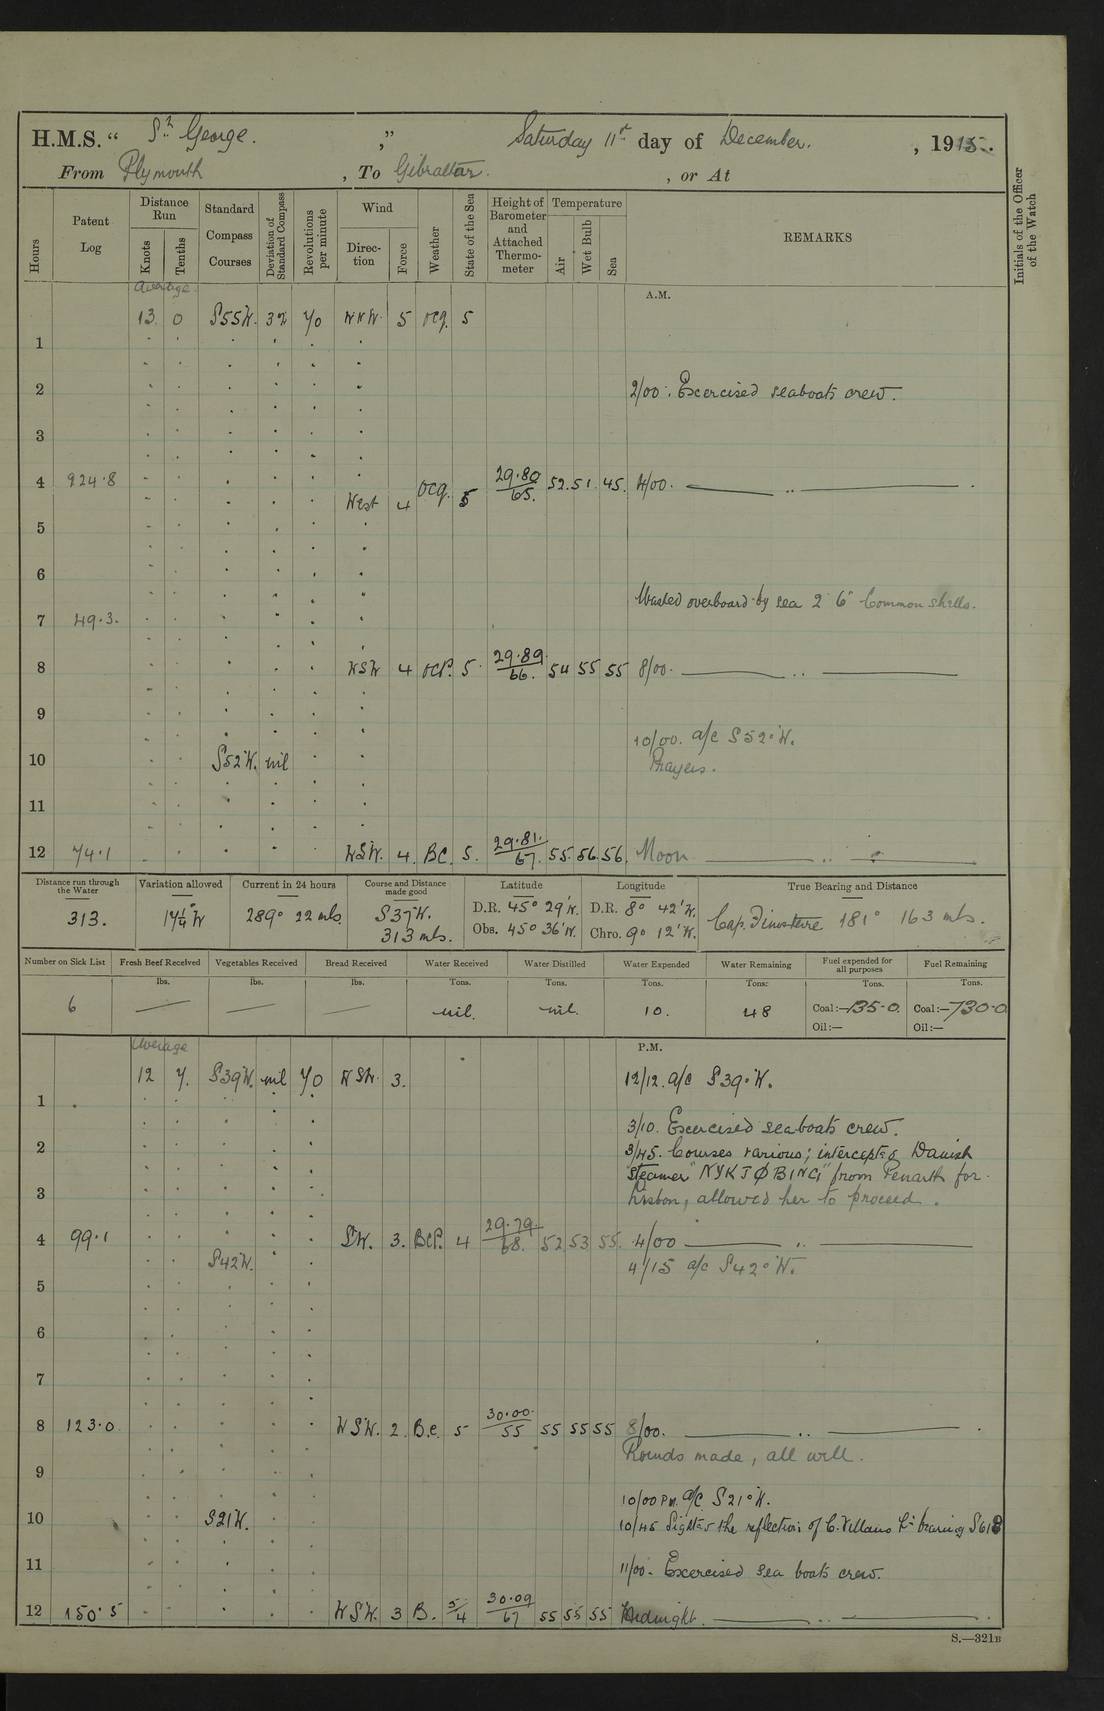 H.M.S. “ St George. ,” Saturday 11th day of December. , 1915.
From Plymouth , To Gibraltar. , or At
Hours
Patent Log
Distance Run
Knots
Tenths
Standard Compass Courses
Deviation of Standard Compass
Revolutions per minute
Wind
Direc-tion
Force
Weather
State of the Sea
Height of Barometer and Attached Thermo-meter
Temperature
Air
Wet Bulb
Sea
REMARKS
Initials of the Officer of the Watch
Average
A.M.
13 0 S55W. 70 WNW. 5 ocq. 5
1
2 2/00. Exercised seaboats crew.
3
4 924.8 ocq. 5 29.80 65. 52. 51. 45. 4/00. ..
West 4
5
6
Washed overboard by sea 2 6" Common shells.
7 49.3.
8 WSW 4 ocp. 5 29.89 66. 54 55 55 8/00. ..
9
10/00. a/c S52°W.
10 S52°W. nil Prayers.
11
12 74.1 WSW. 4. BC. 5. 29.81. 67. 55. 56. 56. Noon ..
Distance run through the Water
Variation allowed
Current in 24 hours
Course and Distance made good
Latitude
Longitude
True Bearing and Distance
313. 289° 22 mls. S37°W. 313 mls.
D.R. 45° 29'N. D.R. 8° 42'W.
Obs. 45° 36'N. Chro. 9° 12'W.
Cap. Finisterre 181° 163 mls.
Number on Sick List
Fresh Beef Received
Vegetables Received
Bread Received
Water Received
Water Distilled
Water Expended
Water Remaining
Fuel expended for all purposes
Fuel Remaining
lbs. lbs. lbs. Tons. Tons. Tons. Tons. Tons. Tons.
6 — — — nil. nil. 10. 48 Coal:—135.0. Coal:—730.0
Oil:— Oil:—
Average
P.M.
12 7. S39W. nil 70 WSW. 3. 12/12. a/c S39°W.
1
3/10. Exercised seaboats crew.
2 3/45. Courses various; intercepted Danish
Steamer "NYKJØBING" from Penarth for
3 Lisbon, allowed her to proceed.
4 99.1 SW. 3. BCP. 4 29.79. 68. 52 53 55. 4/00 ..
S42W. 4/15 a/c S42°W.
5
6
7
8 123.0 WSW. 2. B.c. 5 30.00. 55 55 55 55 8/00. ..
Rounds made, all well.
9
10/00 PM. a/c S21°W.
10 S21W. 10/45 Sighted the reflection of C. Villano Lt bearing
11 11/00. Exercised sea boats crew.
12 150.5 WSW. 3 B. 30.09 67 55 55 55 Midnight. ..
S.—321B